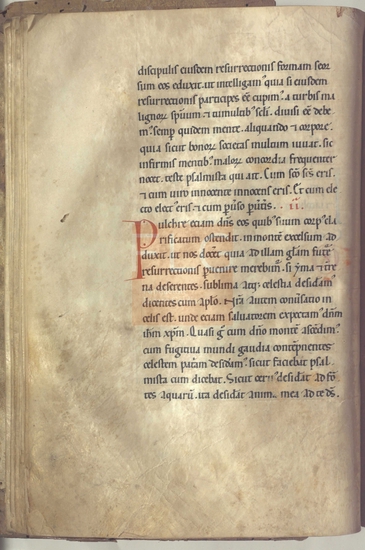 discipulis eiusdem resurrectionis formam seor
sum eos eduxit. ut intelligam⁹ quia si eiusdem
resurrectionis participes eē cupim⁹. a turbis ma
lignorꝝ sp̄uum ⁊ tumultib⁹ sc̄li. divisi eē debe
m⁹. semꝑ quidem mente. aliquando ⁊ corpore.
quia sicut bonorꝝ societas multum iuvat. sic
infirmis mentib⁹ malorꝝ concordia frequenter
nocet. teste psalmista qui ait. Cum sc̄o sc̄s eris.
⁊ cum viro innocente innocens eris. Et cum ele
cto elect⁹ eris ⁊ cum ꝑv̄so ꝑv̄tis. . ii.
Pulchre etiam dn̄s eos quib⁹ suum corp⁹ cla
rificatum ostendit. in montē excelsum ad
duxit. ut nos docēt quia ad illam gl̄am futurę
resurrectionis ꝑvenire merebim̄. si yma ⁊ t̄re
na deserentes. sublima atq; celestia desidam⁹
dicentes cum apl̄o. N̄r̄a autem conv̄satio in
cęlis est. unde etiam salvatorem expectam⁹ dn̄m
ih̄m xp̄m. Quasi g° cum dn̄o montē ascendim⁹.
cum fugitiva mundi gaudia contēpnentes
celestem patriam desidam⁹. sicut faciebat psal
mista cum dicebat. Sicut cerv⁹ desidat ad fon
tes aquarū. ita desidat anima mea ad te ds̄.